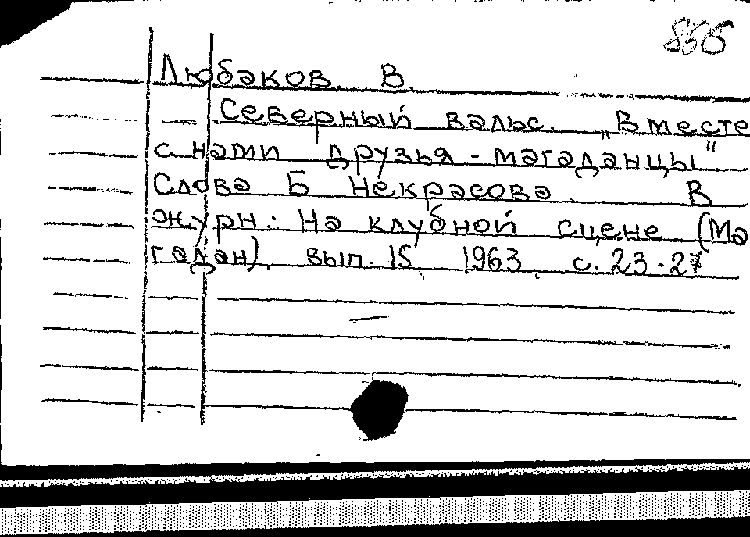 855
Любаков. В.
— Северный вальс. „Вместе
с нами друзья - магаданцы"
Слова Б Некрасова. В
журн: На клубной сцене (Ма
гадан), вып. 15, 1963, с. 23-27